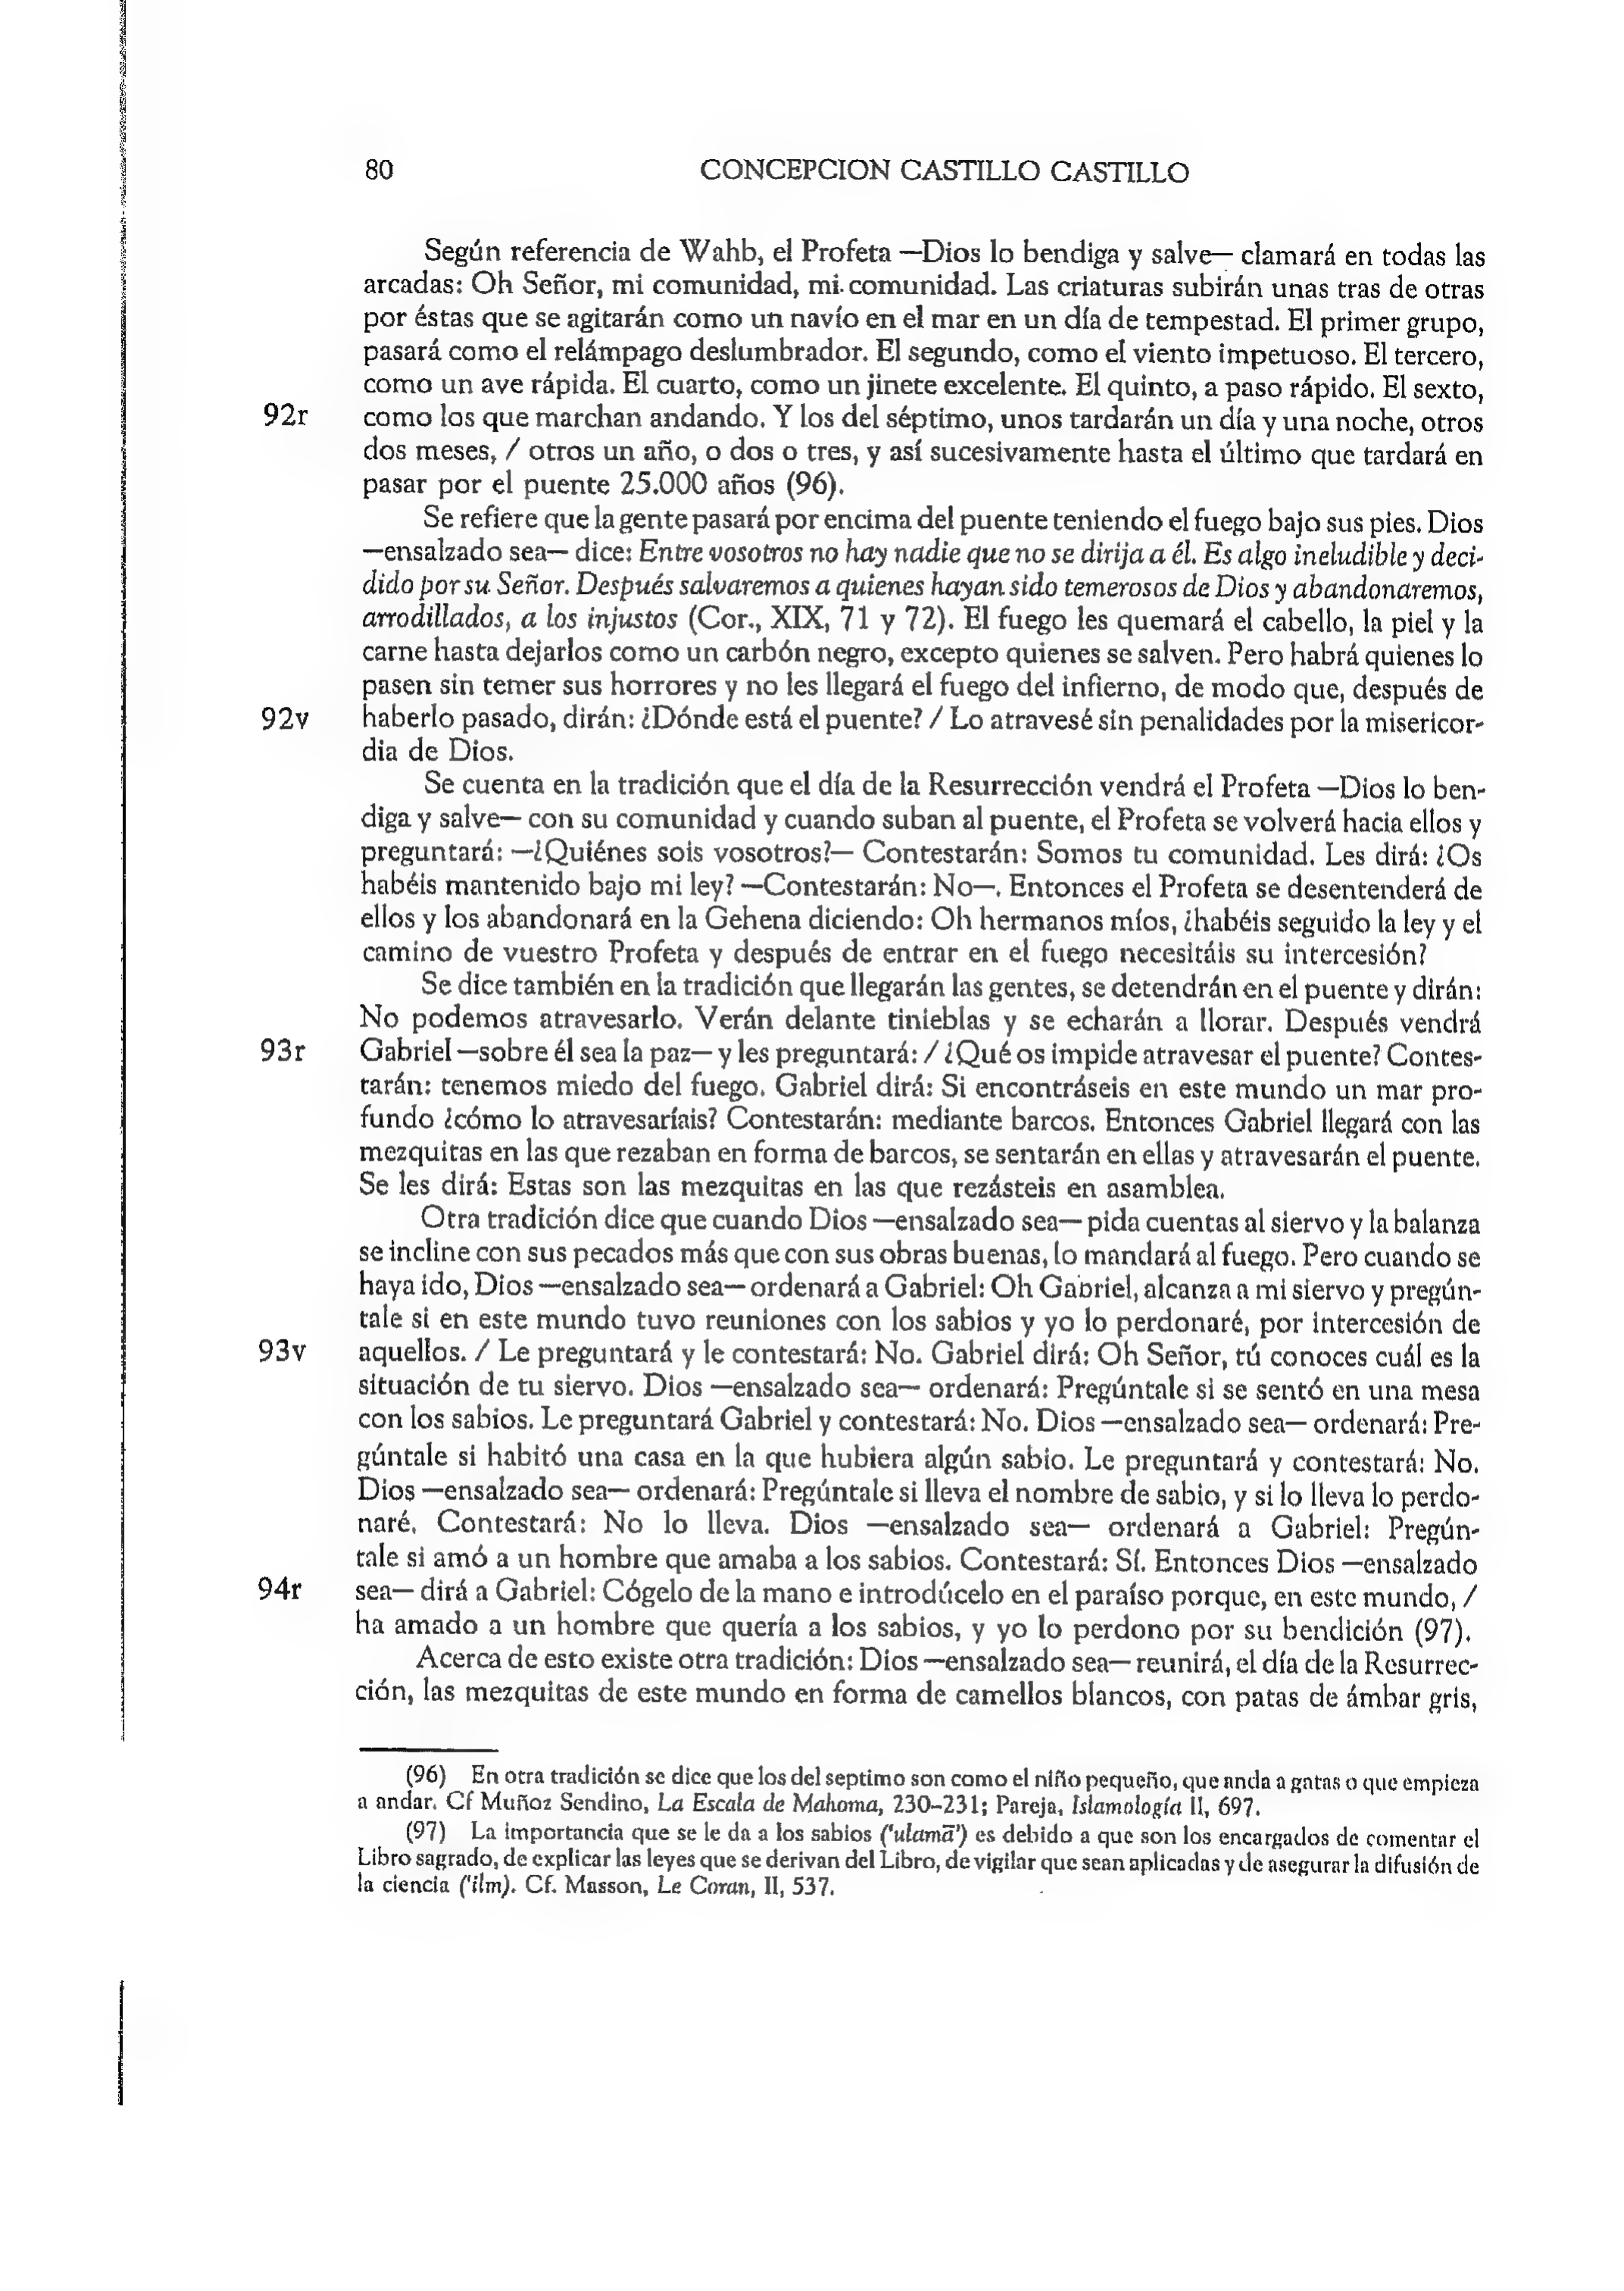 80 CONCEPCION CASTILLO CASTILLO
Según referencia de Wahb, el Profeta —Dios lo bendiga y salve— clamará en todas las
arcadas: Oh Señor, mi comunidad, mi comunidad. Las criaturas subirán unas tras de otras
por éstas que se agitarán como un navío en el mar en un día de tempestad. El primer grupo,
pasará como el relámpago deslumbrador. El segundo, como el viento impetuoso. El tercero,
como un ave rápida. El cuarto, como un jinete excelente. El quinto, a paso rápido. El sexto,
92r como los que marchan andando. Y los del séptimo, unos tardarán un día y una noche, otros
dos meses, / otros un año, o dos o tres, y así sucesivamente hasta el último que tardará en
pasar por el puente 25.000 años (96).
Se refiere que la gente pasará por encima del puente teniendo el fuego bajo sus pies. Dios
—ensalzado sea— dice: Entre vosotros no hay nadie que no se dirija a él. Es algo ineludible y deci-
dido por su Señor. Después salvaremos a quienes hayan sido temerosos de Dios y abandonaremos,
arrodillados, a los injustos (Cor., XIX, 71 y 72). El fuego les quemará el cabello, la piel y la
carne hasta dejarlos como un carbón negro, excepto quienes se salven. Pero habrá quienes lo
pasen sin temer sus horrores y no les llegará el fuego del infierno, de modo que, después de
92v haberlo pasado, dirán: ¿Dónde está el puente? / Lo atravesé sin penalidades por la misericor-
dia de Dios.
Se cuenta en la tradición que el día de la Resurrección vendrá el Profeta —Dios lo ben-
diga y salve— con su comunidad y cuando suban al puente, el Profeta se volverá hacia ellos y
preguntará: —¿Quiénes sois vosotros?— Contestarán: Somos tu comunidad. Les dirá: ¿Os
habéis mantenido bajo mi ley? —Contestarán: No—. Entonces el Profeta se desentenderá de
ellos y los abandonará en la Gehena diciendo: Oh hermanos míos, ¿habéis seguido la ley y el
camino de vuestro Profeta y después de entrar en el fuego necesitáis su intercesión?
Se dice también en la tradición que llegarán las gentes, se detendrán en el puente y dirán:
No podemos atravesarlo. Verán delante tinieblas y se echarán a llorar. Después vendrá
93r Gabriel —sobre él sea la paz— y les preguntará: / ¿Qué os impide atravesar el puente? Contes-
tarán: tenemos miedo del fuego. Gabriel dirá: Si encontráseis en este mundo un mar pro-
fundo ¿cómo lo atravesaríais? Contestarán: mediante barcos. Entonces Gabriel llegará con las
mezquitas en las que rezaban en forma de barcos, se sentarán en ellas y atravesarán el puente.
Se les dirá: Estas son las mezquitas en las que rezásteis en asamblea.
Otra tradición dice que cuando Dios —ensalzado sea— pida cuentas al siervo y la balanza
se incline con sus pecados más que con sus obras buenas, lo mandará al fuego. Pero cuando se
haya ido, Dios —ensalzado sea— ordenará a Gabriel: Oh Gabriel, alcanza a mi siervo y pregún-
tale si en este mundo tuvo reuniones con los sabios y yo lo perdonaré, por intercesión de
93v aquellos. / Le preguntará y le contestará: No. Gabriel dirá: Oh Señor, tú conoces cuál es la
situación de tu siervo. Dios —ensalzado sea— ordenará: Pregúntale si se sentó en una mesa
con los sabios. Le preguntará Gabriel y contestará: No. Dios —ensalzado sea— ordenará: Pre-
gúntale si habitó una casa en la que hubiera algún sabio. Le preguntará y contestará: No.
Dios —ensalzado sea— ordenará: Pregúntale si lleva el nombre de sabio, y si lo lleva lo perdo-
naré. Contestará: No lo lleva. Dios —ensalzado sea— ordenará a Gabriel: Pregún-
tale si amó a un hombre que amaba a los sabios. Contestará: Sí. Entonces Dios —ensalzado
94r sea— dirá a Gabriel: Cógelo de la mano e introdúcelo en el paraíso porque, en este mundo, /
ha amado a un hombre que quería a los sabios, y yo lo perdono por su bendición (97).
Acerca de esto existe otra tradición: Dios —ensalzado sea— reunirá, el día de la Resurrec-
ción, las mezquitas de este mundo en forma de camellos blancos, con patas de ámbar gris,
(96) En otra tradición se dice que los del septimo son como el niño pequeño, que anda a gatas o que empieza
a andar. Cf Muñoz Sendino, La Escala de Mahoma, 230-231; Pareja, Islamología II, 697.
(97) La importancia que se le da a los sabios ('ulamā') es debido a que son los encargados de comentar el
Libro sagrado, de explicar las leyes que se derivan del Libro, de vigilar que sean aplicadas y de asegurar la difusión de
la ciencia ('ilm). Cf. Masson, Le Coran, II, 537.